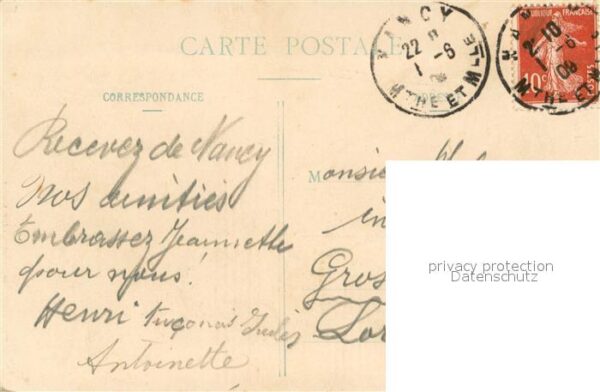 CARTE POSTALE
NANCY
22
1 -6
08
MTHE ET MLLE
REPUBLIQUE FRANÇAISE
10c
POSTES
2-10
1 -6
08
MTHE ET M
CORRESPONDANCE
Recevez de Nancy
Nos amitiés
Embrassez Jeannette
pour nous!
Henri
Antoinette
Monsie
in
Gros
Lor
privacy protection
Datenschutz